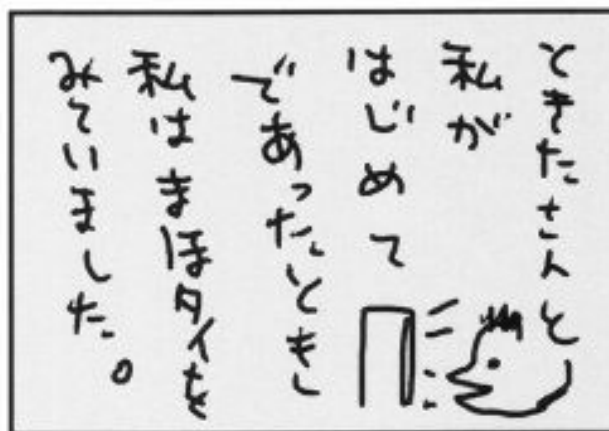 ときたさんと
私が
はじめて
であったとき
私はまほタイを
みていました。